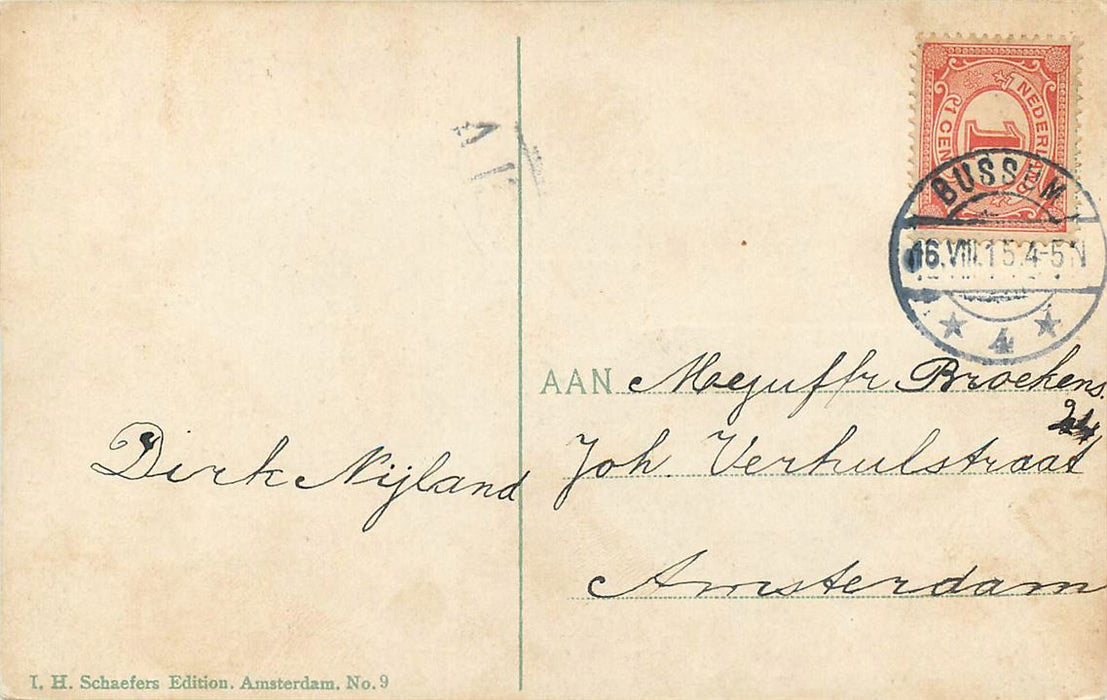 NEDERLAND
1 CENT
1
BUSSUM
16.VIII.15.4-5N
4
AAN Mejuffr Broekens.
Joh. Verhulstraat
Amsterdam
Dirk Nijland
I. H. Schaefers Edition. Amsterdam. No. 9